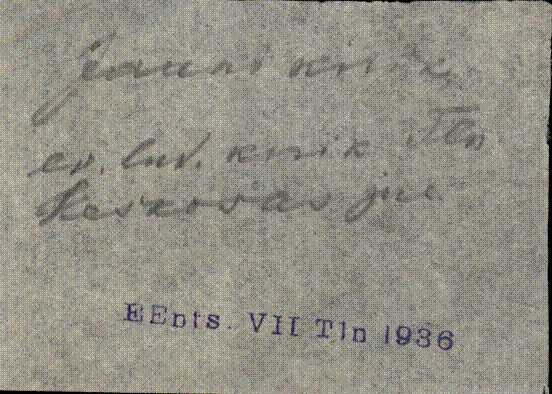 Jaani kirik,
ev. lut. kirik Tln
Keskovas jur.
EEnts. VII Tln 1936